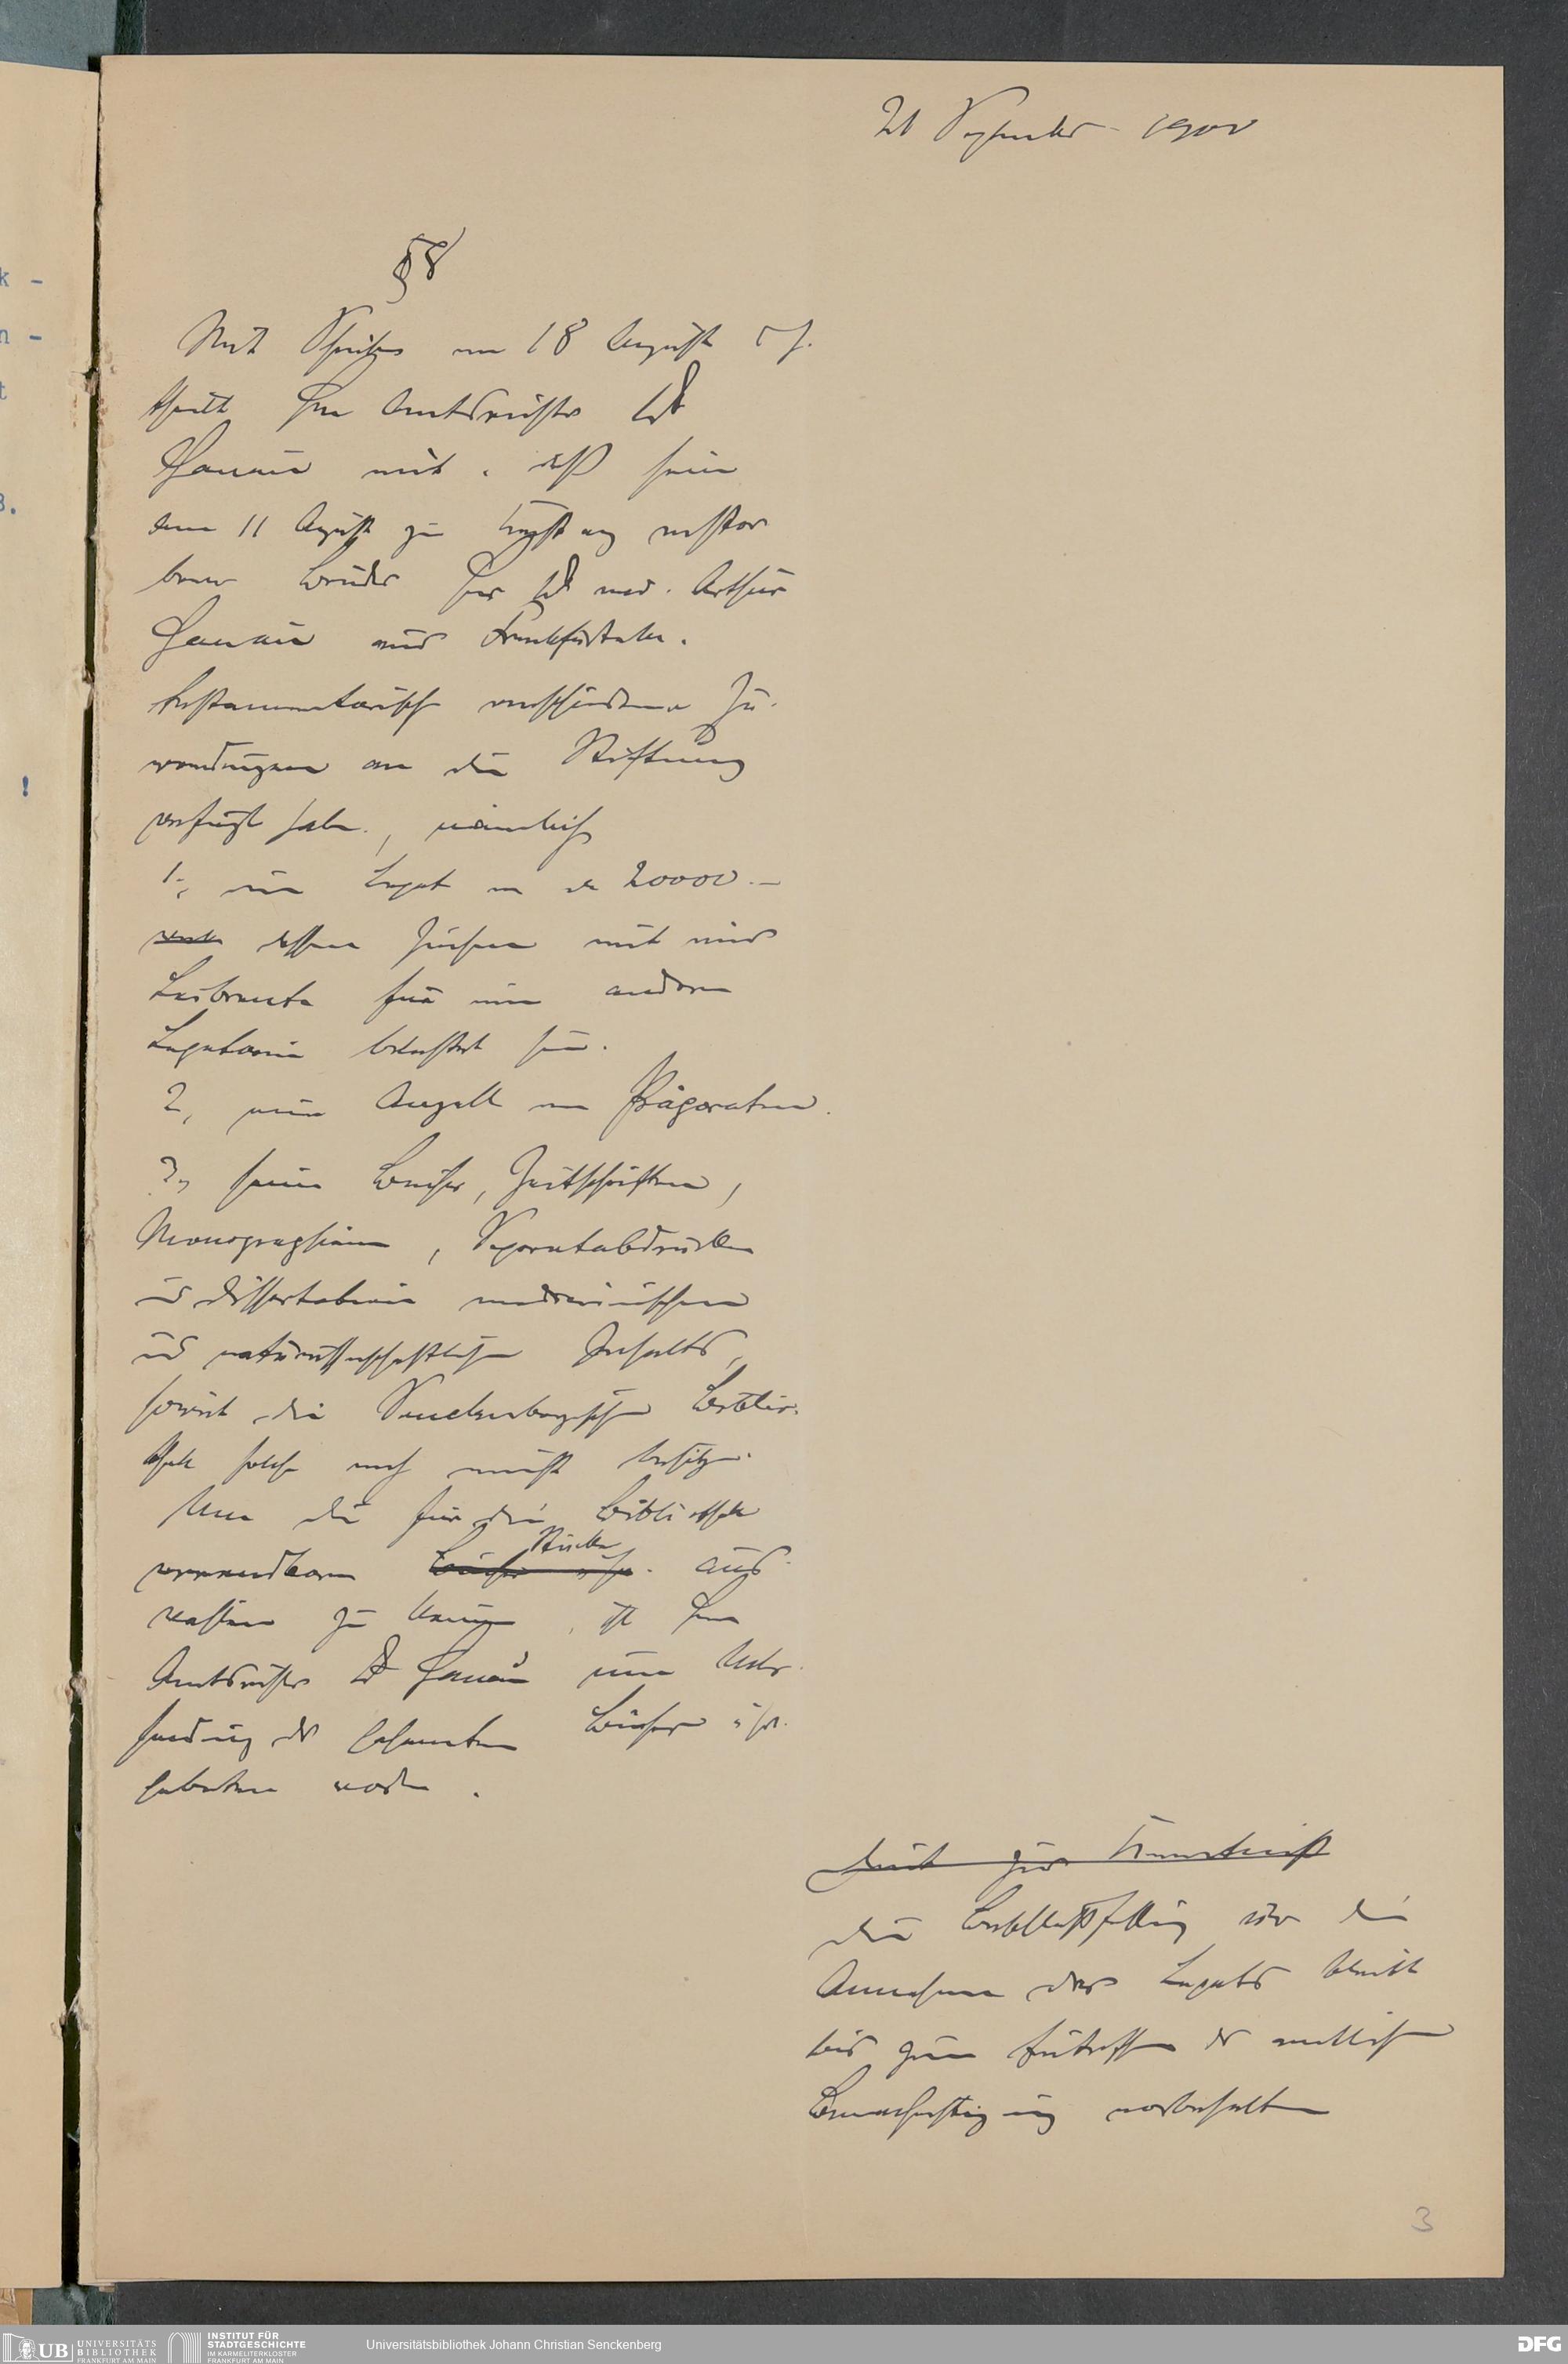 21 September 1900
§8
Mit Schreiben vom 18 August d J.
theilt Herr Amtsrichter Dr
Hanau mit, daß sein
am 11 August zu verstor
bener Bruder Herr Dr med. Arthur
Hanau aus Frankfurt a/M.
testamentarisch verschiedene Zu-
wendungen an die Stiftung
verfügt habe, nämlich
1., ein Legat von M 20000.–
dessen Zinsen mit einer
Leibrente für eine andere
Legatarin belastet sein.
2, eine Anzahl von Präparaten.
3, seine Bücher, Zeitschriften,
Monographieen, Separatabdrücke
und Dissertationen medicinischen
und naturwissenschaftlichen Inhalts,
soweit die Senckenbergische Biblio-
thek solche noch nicht besitze.
Um die für die Bibliothek
Stücke
verwendbaren Bücher usw. aus-
wählen zu können, ist Herr
Amtsrichter Dr Hanau um Ueber-
sendung der gesammten Bücher usw.
gebeten worden.
dient zur Kenntniß
die Beschlußfassung über die
Annahme des Legats bleibt
bis zum Eintreffen der amtlichen
Benachrichtigung vorbehalten
3
k -
n -
t
3.
!
UB
UNIVERSITÄTS
BIBLIOTHEK
FRANKFURT AM MAIN
INSTITUT FÜR
STADTGESCHICHTE
IM KARMELITERKLOSTER
FRANKFURT AM MAIN
Universitätsbibliothek Johann Christian Senckenberg
DFG